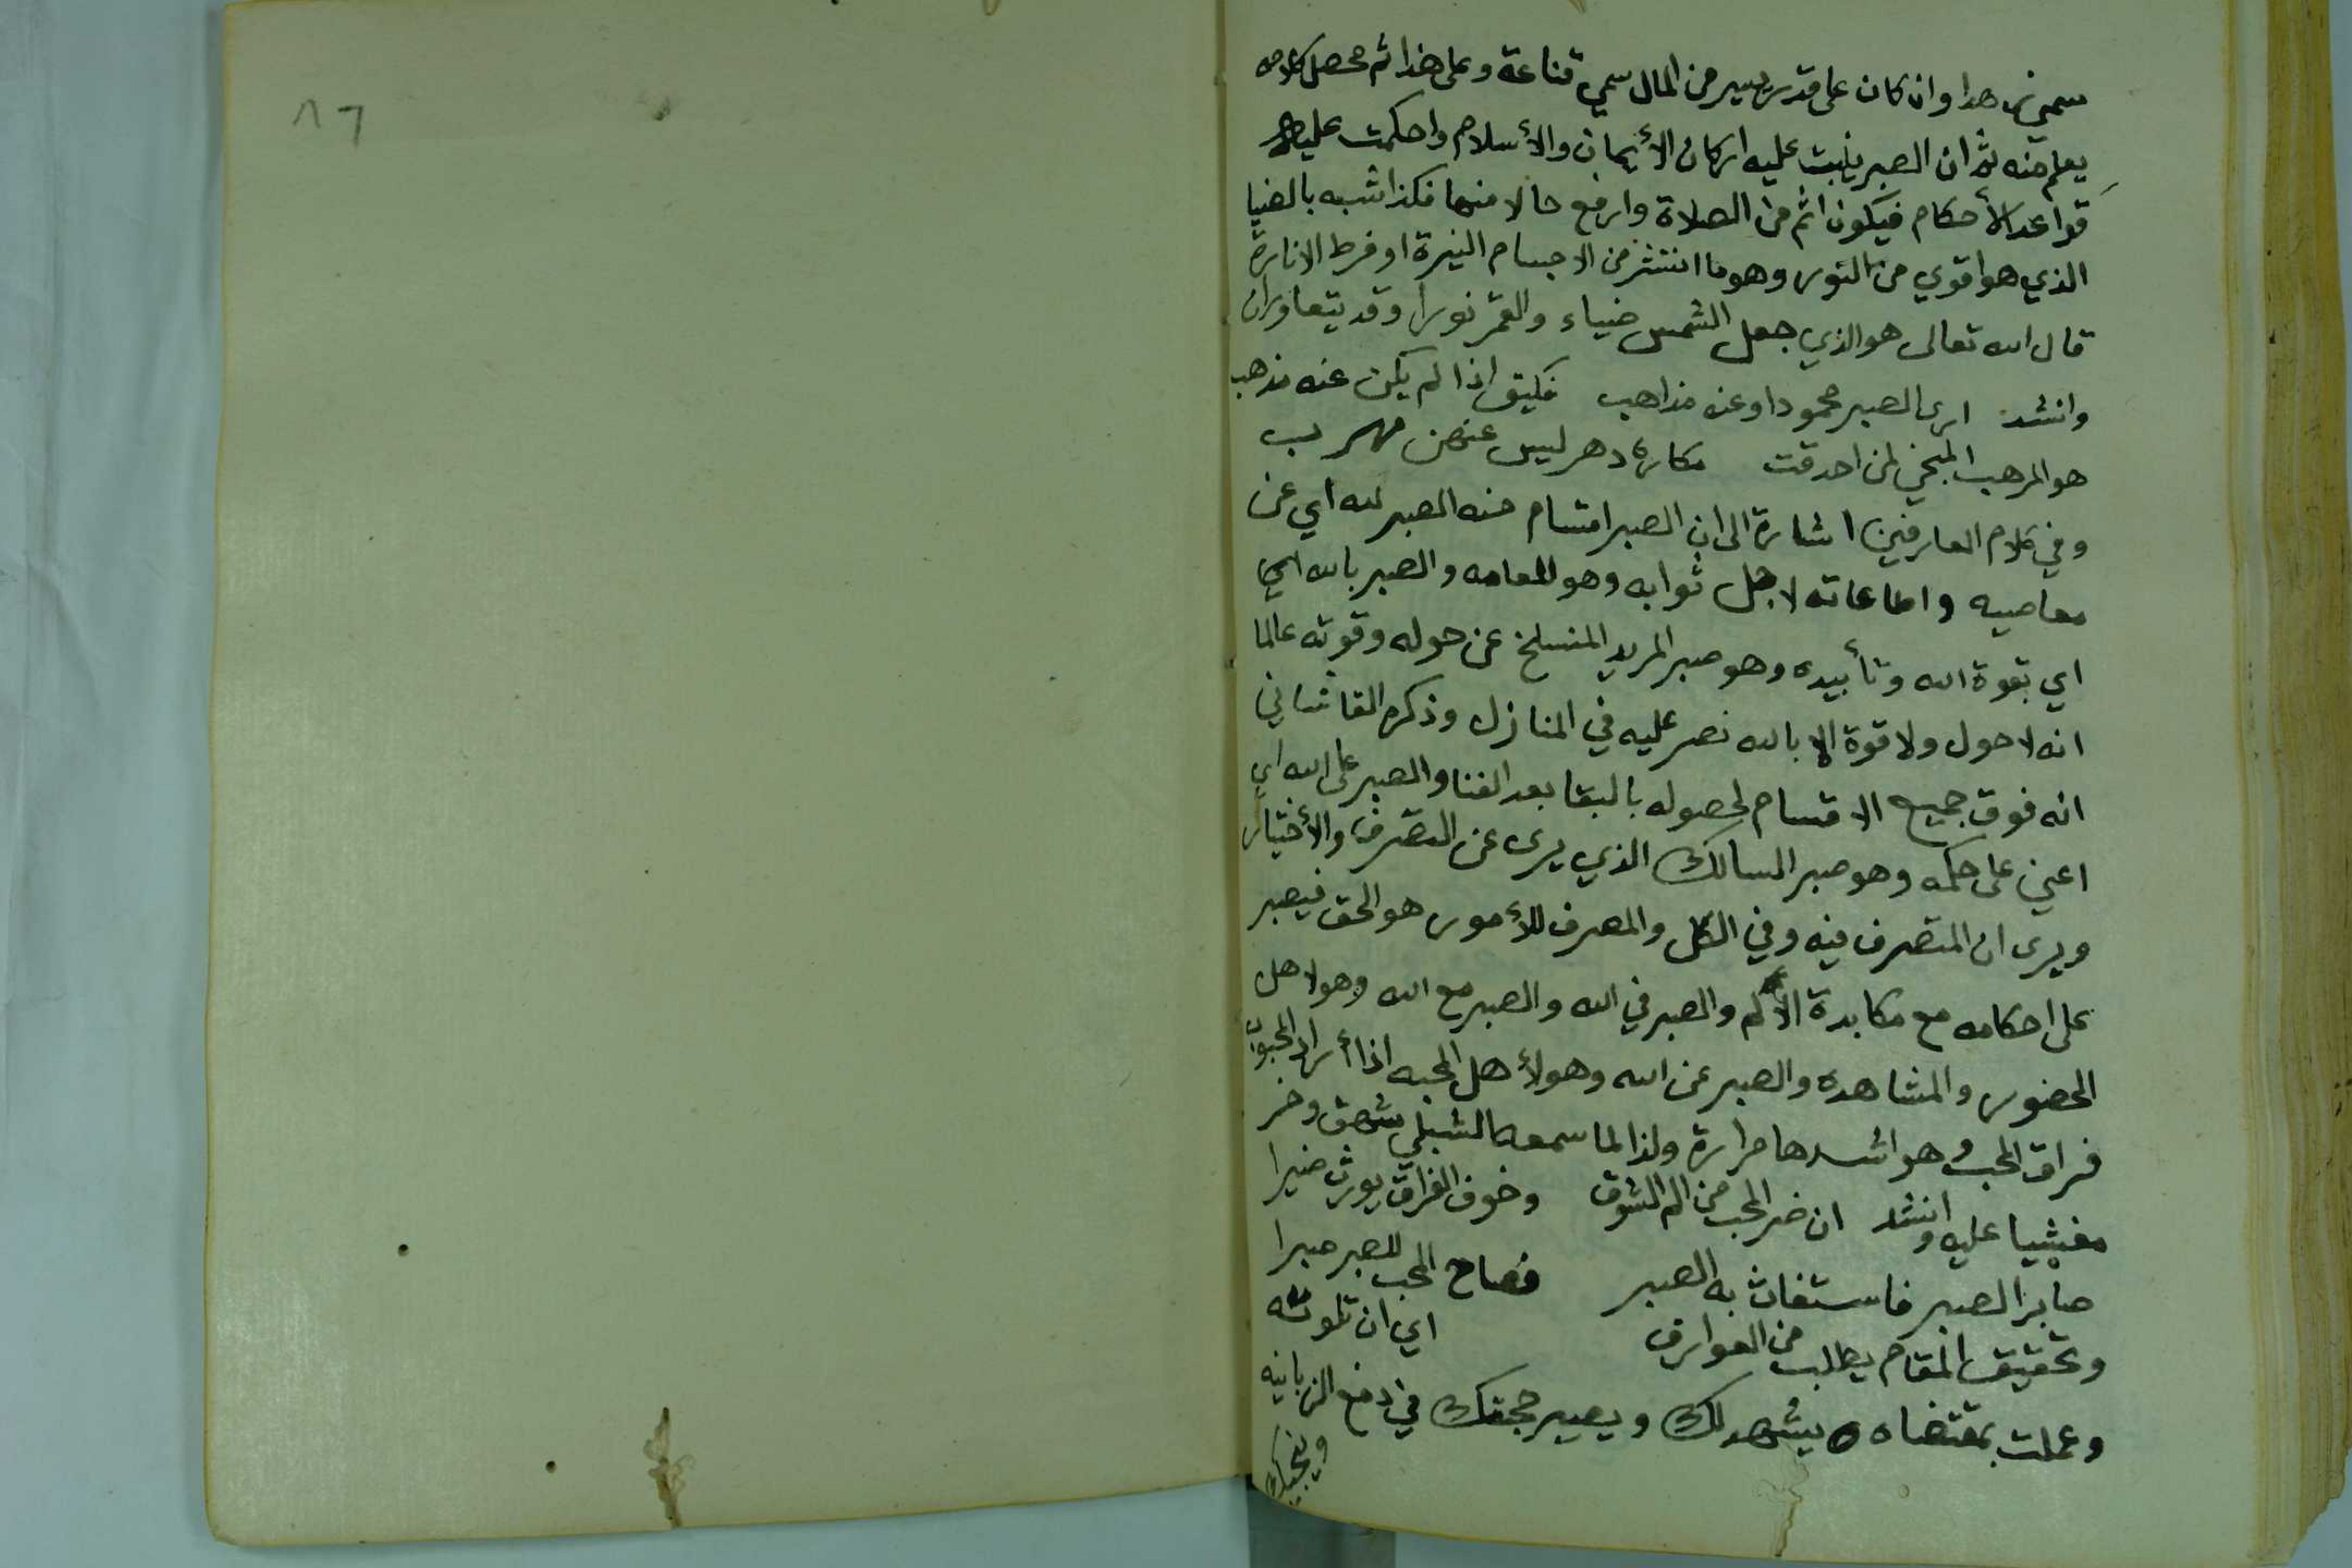 سمي زهدا وان كان على قدر يسير من المال سمي قناعة وعلى هذا ثم محصل كلامه
يعلم منه ثم ان الصبر ينبت عليه اركان الأيمان والأسلام واحكمت عليه
قواعد الأحكام فيكون اتم من الصلاة وارفع حالا منها فكذا شبه بالضيا
الذي هو اقوي من النور وهو ما انتشر من الاجسام النيرة او فرط الانارة
قال الله تعالى هو الذي جعل الشمس ضياء والقمر نورا وقد يتعاوران
وانشد ارى الصبر محمودا وعنه مذاهب فكيف اذا لم يكن عنه مذهب
هو المرهب المنجي لمن احدقت مكاره دهر ليس عنهن مهرب
وفي كلام العارفين اشارة الى ان الصبر اقسام منه الصبر لله اي عن
معاصيه و اطاعاته لاجل ثوابه وهو للعامه والصبر بالله اي
اي بقوة الله وتأييده وهو صبر المريد المنسلخ عن حوله وقوته عالما
انه لا حول ولا قوة الا بالله نص عليه في المنازل وذكر القاشاني
انه فوق جميع الاقسام لحصوله بالبقا بعد الفنا والصبر على الله اي
اعني على حكمه وهو صبر السالك الذي يرى عن التصرف والأختيار
ويرى ان المتصرف فيه وفي الكل والمصرف للأمور هو الحق فيصبر
على احكامه مع مكابدة الألم والصبر في الله والصبر مع الله وهو لاهل
الحضور والمشاهده والصبر عن الله وهو لأهل المحبه اذا أراد المحبوب
فراق المحب وهو اشدها مرارة ولذا لما سمعه الشبلي شهق وخر
مغشيا عليه وانشد ان ضر المحب من الم الشوق وخوف الفراق يورث ضيرا
صابر الصبر فاستغاث به الصبر فصاح المحب للصبر صبرا
وتحقيق المقام يطلب من العوارف اي ان تلوته
وعملت بمقتضاه يشهد لك ويصير حجتك في دفع الزبانيه
وينجيك
٨٦